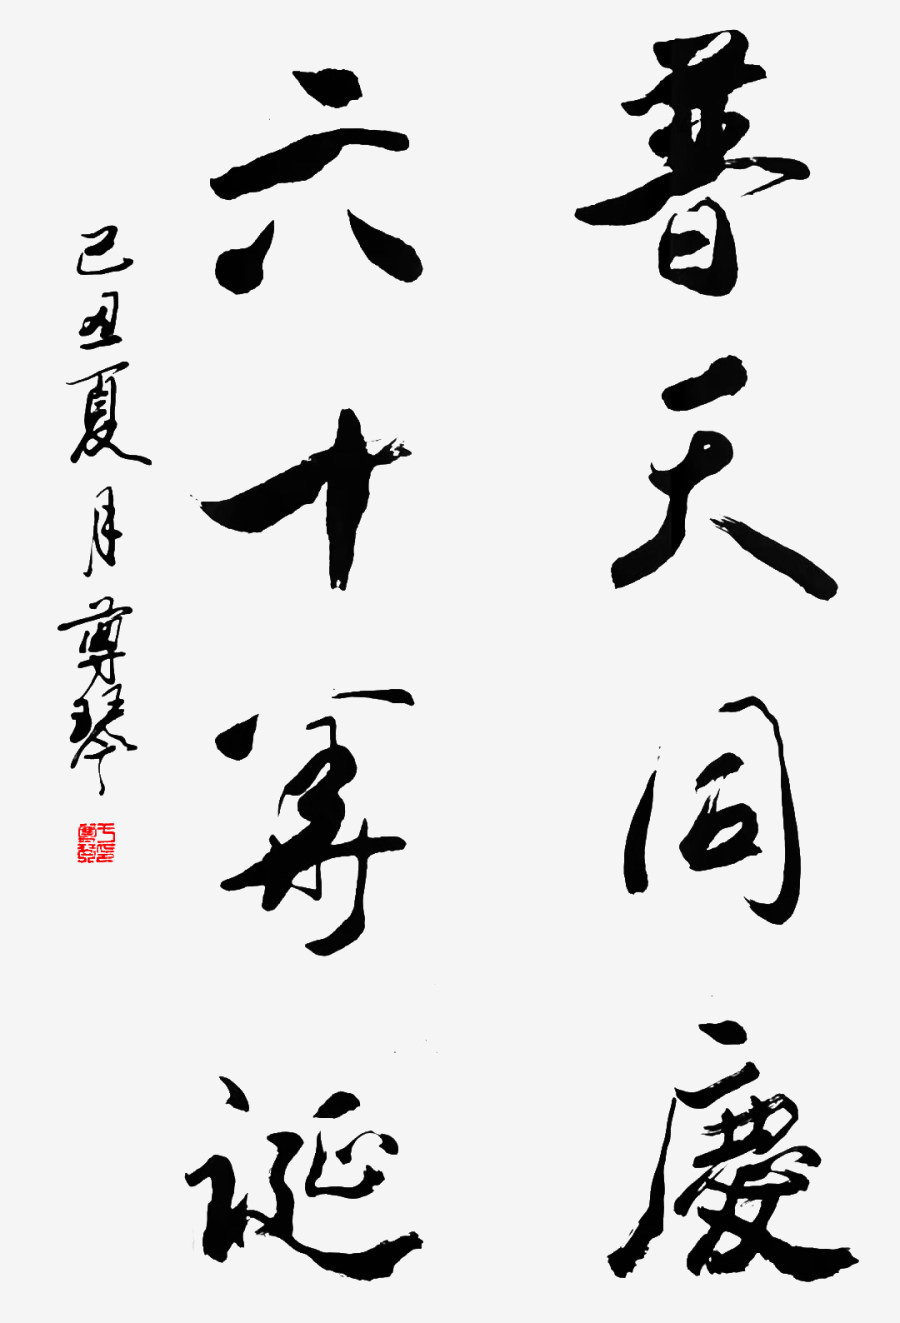 普天同慶
六十華誕
己丑夏月尊琴